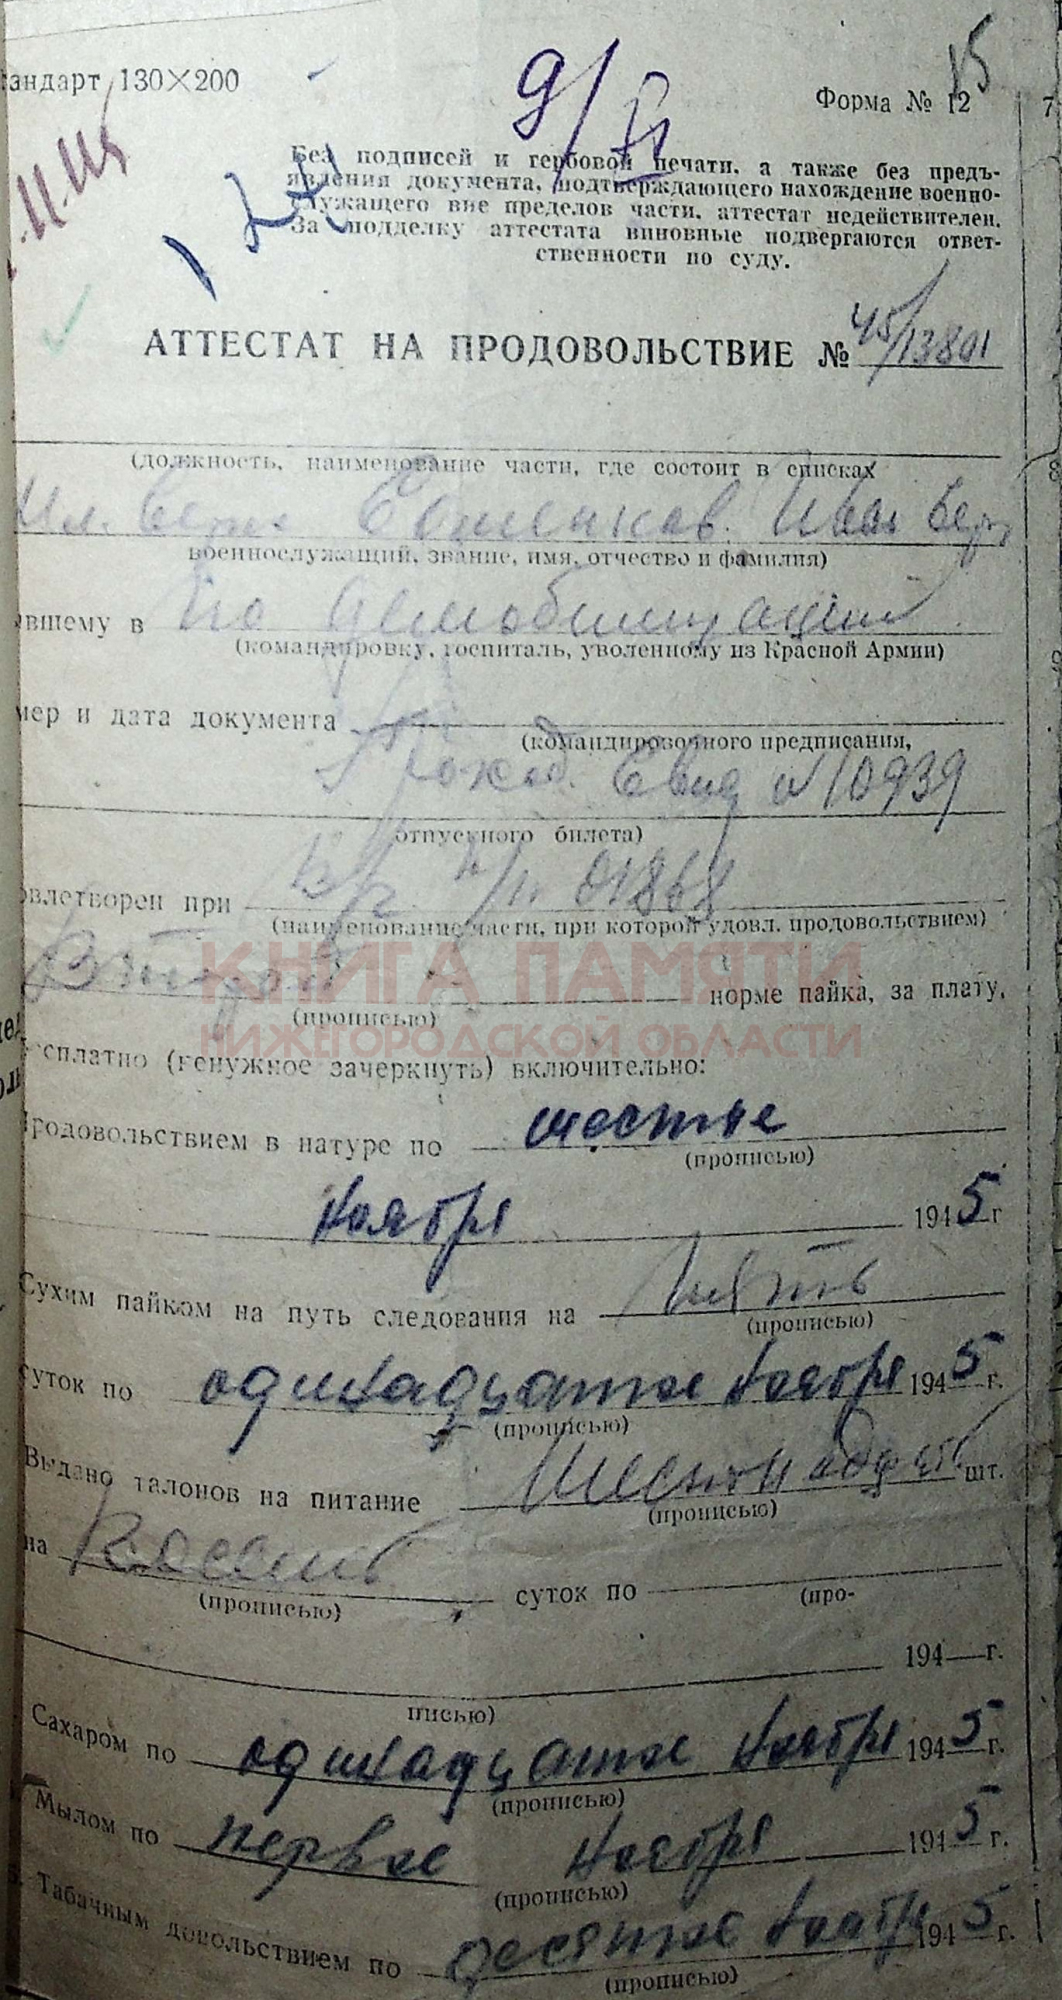 тандарт 130×200
Форма № 12
15
9/
Без подписей и гербовой печати, а также без предъ-
явления документа, подтверждающего нахождение военно-
служащего вне пределов части, аттестат недействителен.
За подделку аттестата виновные подвергаются ответ-
ственности по суду.
АТТЕСТАТ НА ПРОДОВОЛЬСТВИЕ № 45/13801
(должность, наименование части, где состоит в списках
Мл. серж Иван
военнослужащий, звание, имя, отчество и фамилия)
вшему в по демобилизации
(командировку, госпиталь, уволенному из Красной Армии)
мер и дата документа
(командировочного предписания,
10939
отпускного билета)
овлетворен при 01868
(наименование части, при которой удовл. продовольствием)
КНИГА ПАМЯТИ
Второй норме пайка, за плату,
(прописью)
НИЖЕГОРОДСКОЙ ОБЛАСТИ
есплатно (ненужное зачеркнуть) включительно:
Продовольствием в натуре по шестое
(прописью)
ноября 1945 г
Сухим пайком на путь следования на пять
(прописью)
суток по одиннадцатое ноября 1945 г.
(прописью)
Выдано талонов на питание шт.
(прописью)
на восемь суток по
(прописью) (про-
194 г.
писью)
Сахаром по одиннадцатое ноября 1945 г.
(прописью)
Мылом по первое ноября 1945 г.
(прописью)
Табачным довольствием по десятое ноября 1945 г.
(прописью)